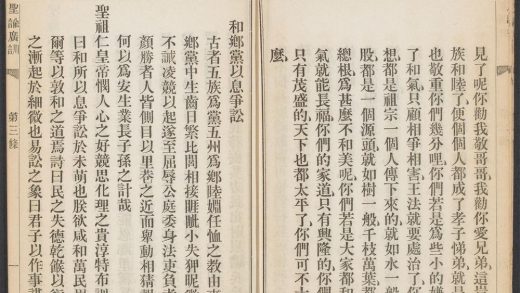 見了呢你勸我敬哥哥我勸你愛兄弟這是
族和睦了便個個人都成了孝子悌弟就是
也敬重你們幾分哩你們若是爲些小的嫌
了和氣只顧相爭相害王法就要處治了你
想都是祖宗一個人傳下來的就如水一般
股都是一個源頭就如樹一般千枝萬葉都
總根爲甚麽不和美呢你們若是大家都和
氣就能長福你們的家道只有興隆的你們
只有茂盛的天下也都太平了你們可不大
麽
和鄉黨以息爭訟
古者五族爲黨五州爲鄉睦婣任恤之教由來
鄉黨中生齒日繁比閭相接睚眦小失狎昵
不誡凌競以起遂至屈辱公庭委身法吏負者
顏勝者人皆側目以里巷之近而舉動相猜
何以爲安生業長子孫之計哉
聖祖仁皇帝憫人心之好競思化理之貴淳特布訓
曰和所以息爭訟於未萌也朕欲咸和萬民
爾等以敦和之道焉詩曰民之失德乾餱以
之漸起於細微也易訟之象曰君子以作事謀
聖諭廣訓
第三條